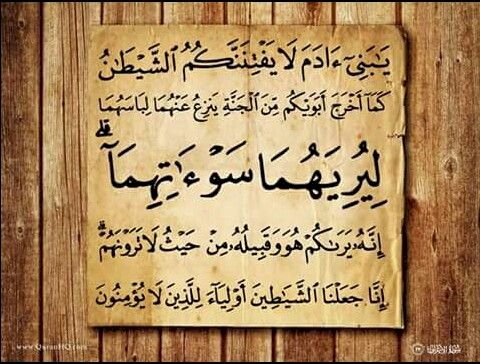 يَـٰبَنِىٓ ءَادَمَ لَا يَفْتِنَنَّكُمُ ٱلشَّيْطَـٰنُ
كَمَآ أَخْرَجَ أَبَوَيْكُم مِّنَ ٱلْجَنَّةِ يَنزِعُ عَنْهُمَا لِبَاسَهُمَا
لِيُرِيَهُمَا سَوْءَٰتِهِمَآ ۗ
إِنَّهُۥ يَرَىٰكُمْ هُوَ وَقَبِيلُهُۥ مِنْ حَيْثُ لَا تَرَوْنَهُمْ ۗ
إِنَّا جَعَلْنَا ٱلشَّيَـٰطِينَ أَوْلِيَآءَ لِلَّذِينَ لَا يُؤْمِنُونَ
www.QuranHQ.com
سورة الأعراف ٢٧